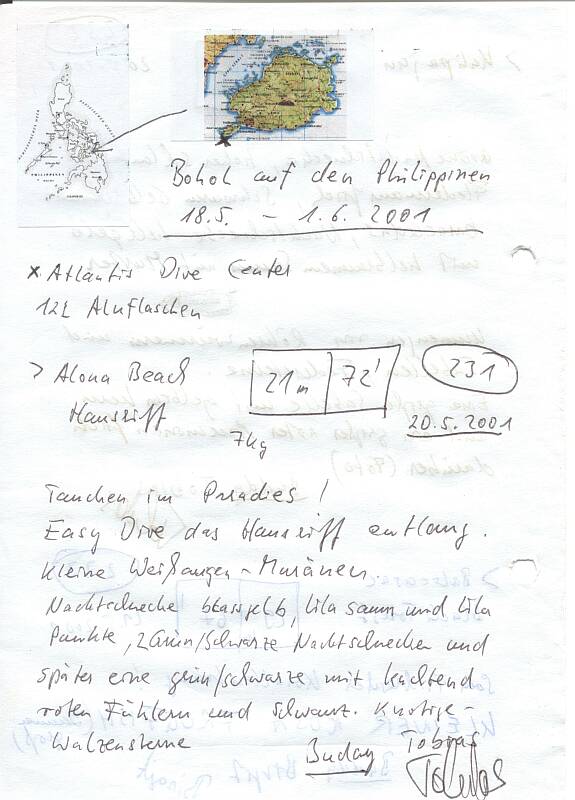 PHILIPPINEN
Bohol auf den Philippinen
18.5. - 1.6. 2001
x Atlantis Dive Center
12L Aluflaschen
> Alona Beach
21m 72' 231
Hausriff
7kg
20.5.2001
Tauchen im Paradies!
Easy Dive das Hausriff entlang.
Kleine Weißaugen-Muränen.
Nachtschnecke blassgelb, lila saum und lila
Punkte, 2 Grün/schwarze Nachtschnecken und
später eine grün/schwarze mit leuchtend
roten Fühlern und schwanz. Knotige-
Walzensterne
Buday Tobias